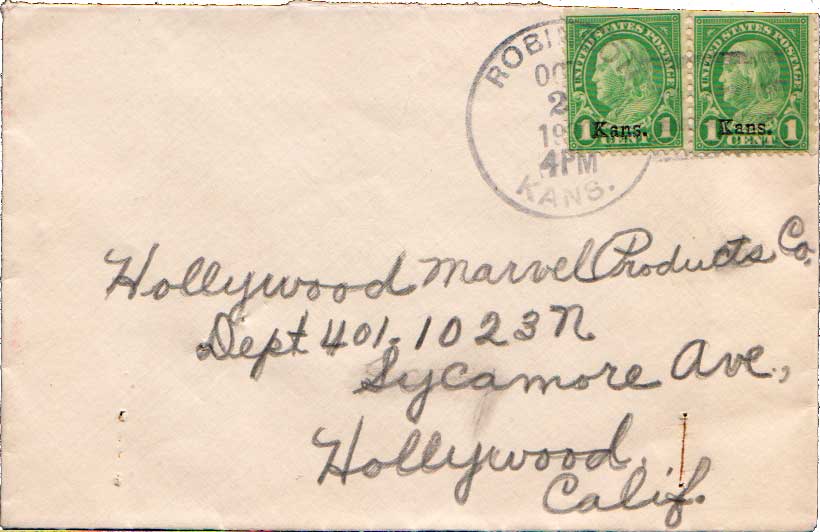 OC
2
19
4PM
KANS.
UNITED STATES POSTAGE
1 Kans. 1
CENT
UNITED STATES POSTAGE
1 Kans. 1
CENT
Hollywood Marvel Products Co.
Dept 401-1023 N
Sycamore Ave.,
Hollywood,
Calif.